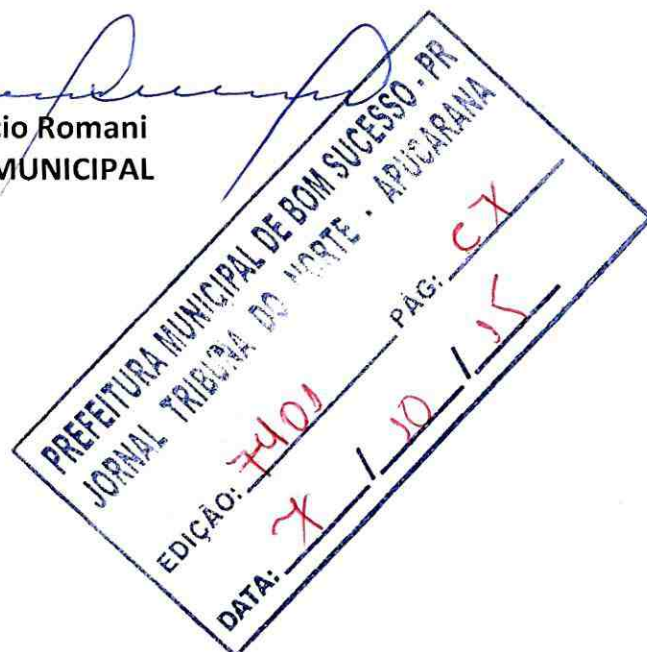 cio Romani
MUNICIPAL
PREFEITURA MUNICIPAL DE BOM SUCESSO - PR
JORNAL TRIBUNA DO NORTE - APUCARANA
EDIÇÃO: 7401 PÁG: C7
DATA: 7 / 10 / 15